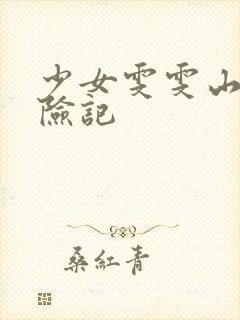 少女雯雯山
險記
桑紅青